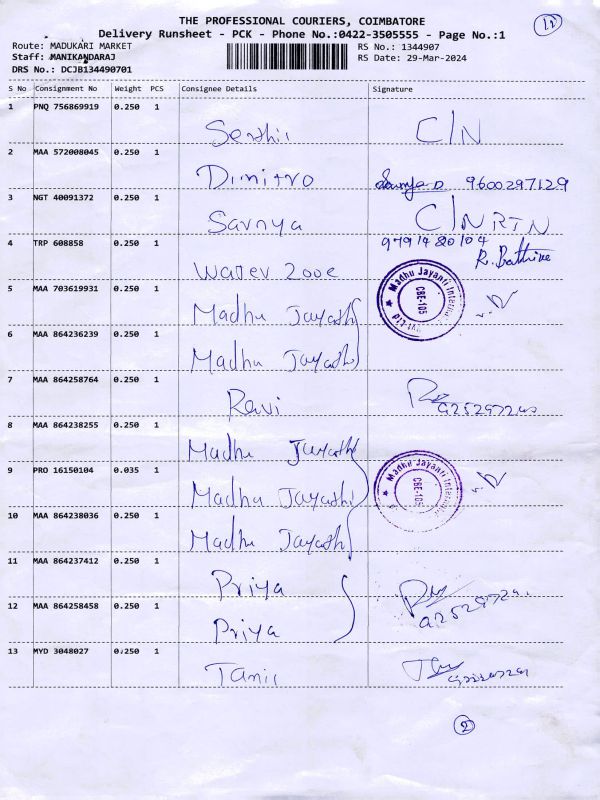 THE PROFESSIONAL COURIERS, COIMBATORE
12
Delivery Runsheet - PCK - Phone No.:0422-3505555 - Page No.:1
Route: MADUKARI MARKET
RS No.: 1344907
Staff: MANIKANDARAJ
RS Date: 29-Mar-2024
DRS No.: DCJB134490701
S No Consignment No Weight PCS Consignee Details Signature
1 PNQ 756869919 0.250 1
C/N
2 MAA 572008045 0.250 1
Dimitro 9600297129
3 NGT 40091372 0.250 1
Savnya C/N RTN
4 TRP 608858 0.250 1 9791480104
Water Zooe
5 MAA 703619931 0.250 1 Madhu Jayanti International Pvt. Ltd CBE-105
Madhu Jayash
6 MAA 864236239 0.250 1
Madhu Jayash
7 MAA 864258764 0.250 1
Ravi
8 MAA 864238255 0.250 1
Madhu Jayash
9 PRO 16150104 0.035 1 Madhu Jayanti CBE-105
Madhu Jayashi
10 MAA 864238036 0.250 1
Madhu Jayash
11 MAA 864237412 0.250 1
Priya
12 MAA 864258458 0.250 1
Priya
13 MYD 3048027 0.250 1
Tamil
2